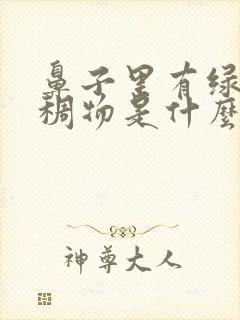 鼻子里有绿
稠物是什麼
神尊大人